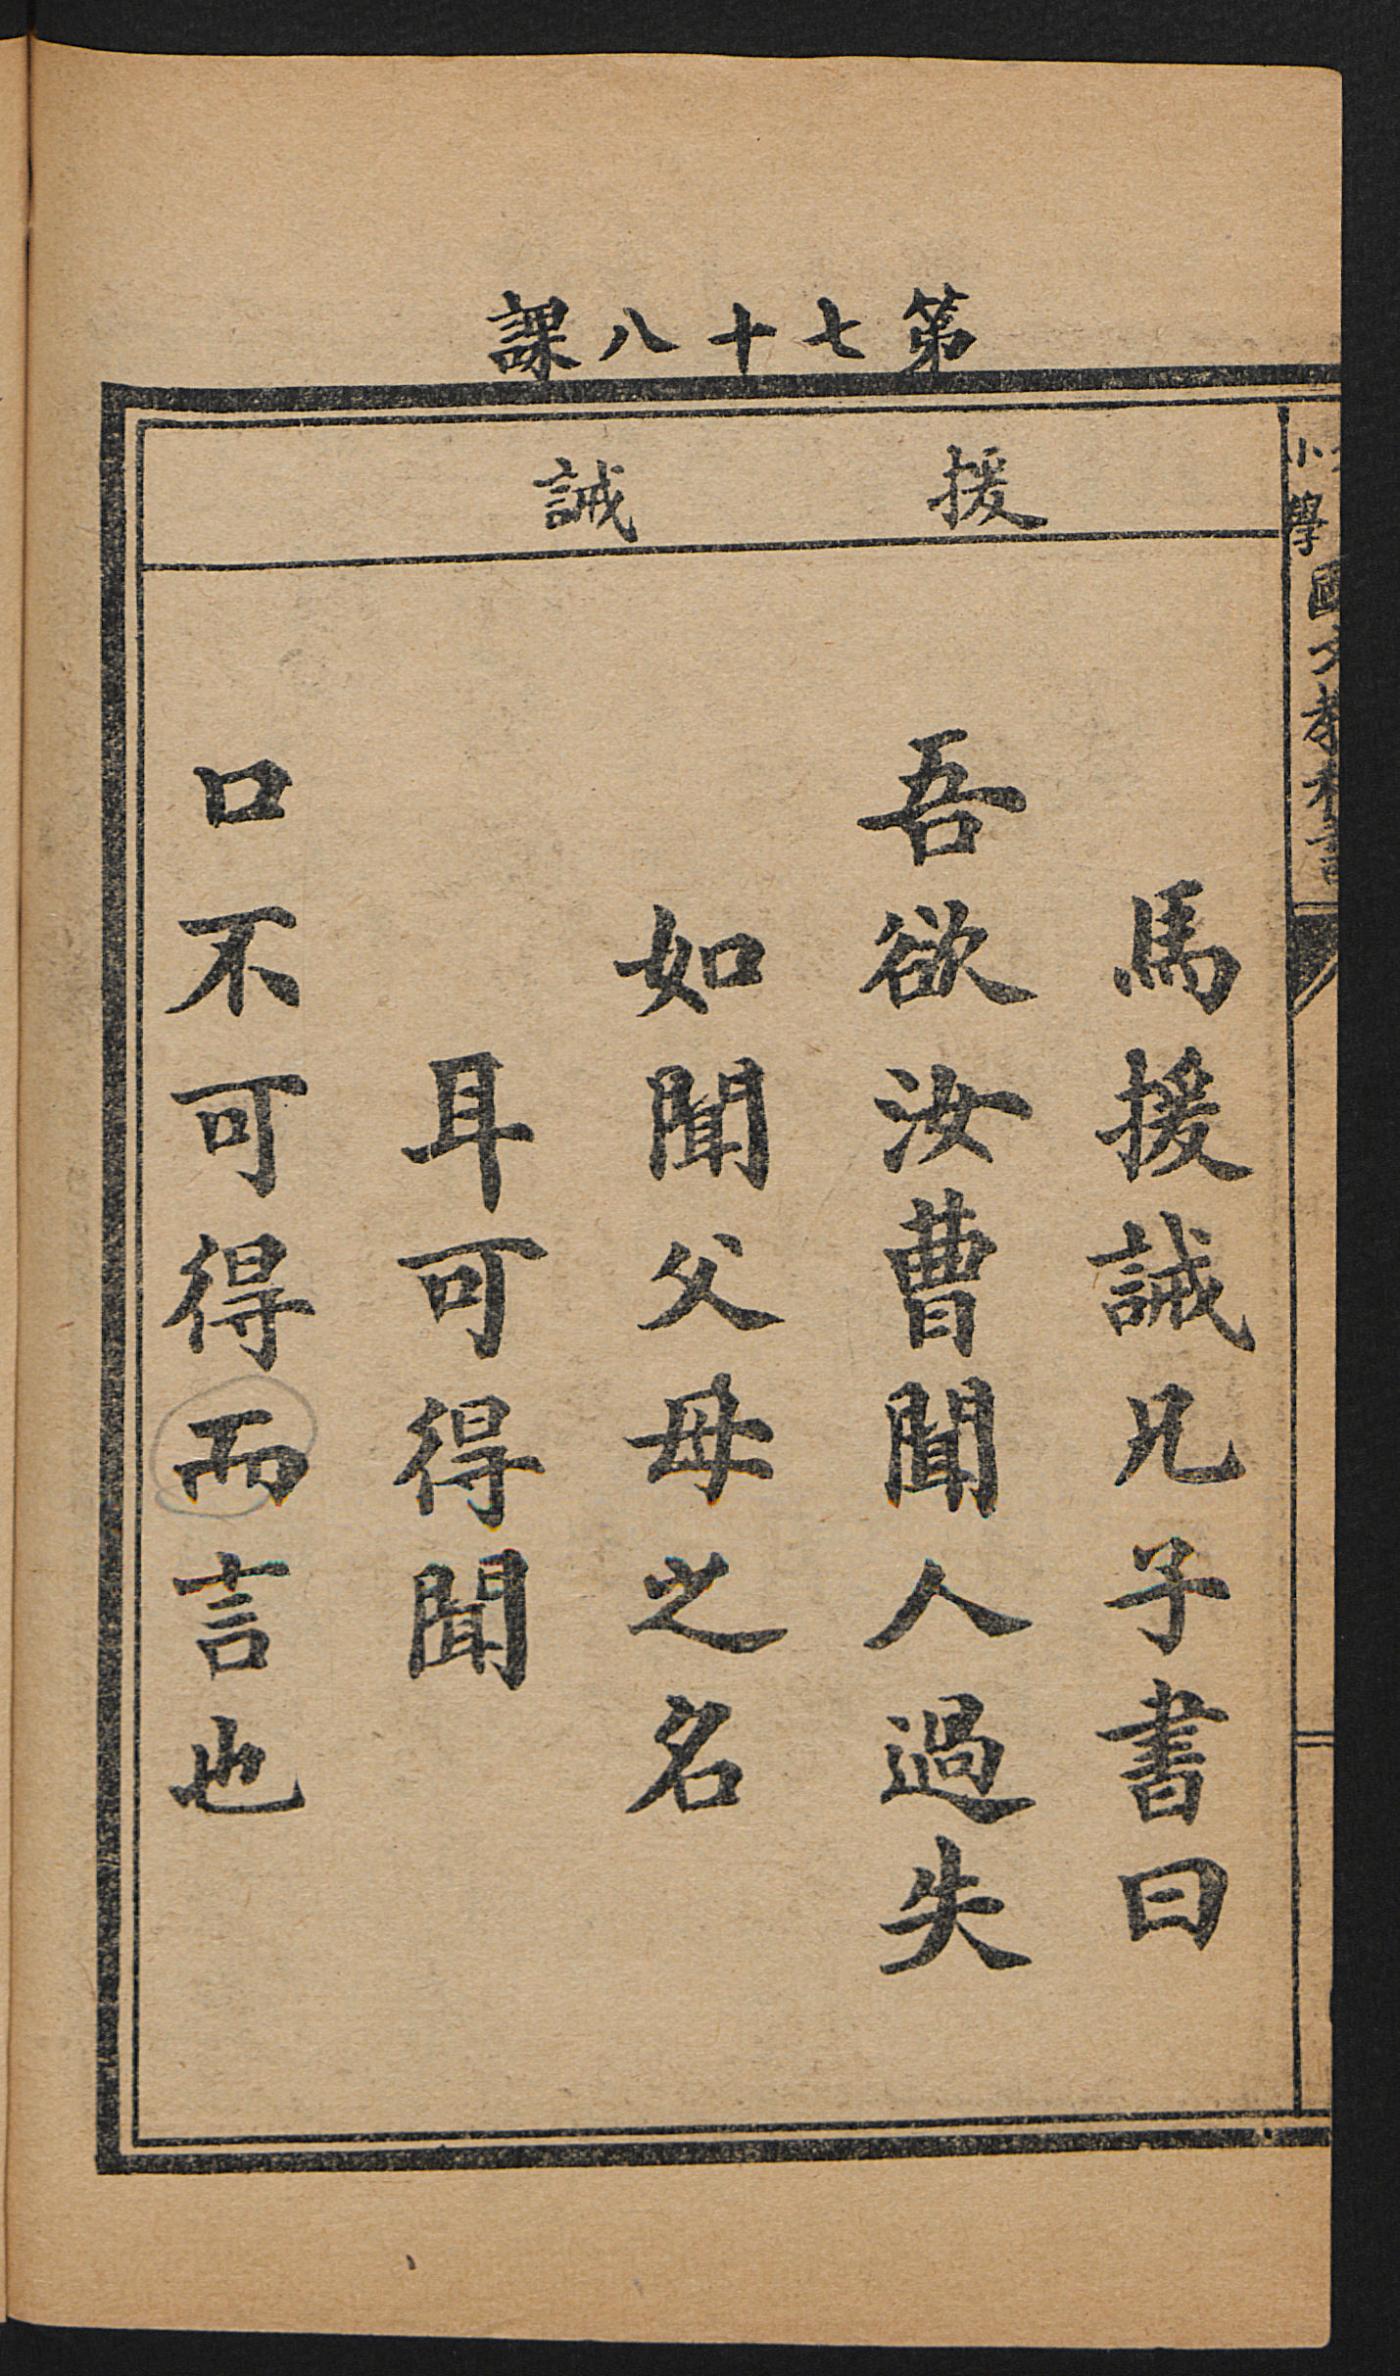 第七十八課
援 誡
馬援誡兄子書曰
吾欲汝曹聞人過失
如聞父母之名
耳可得聞
口不可得而言也
小學
國文教科